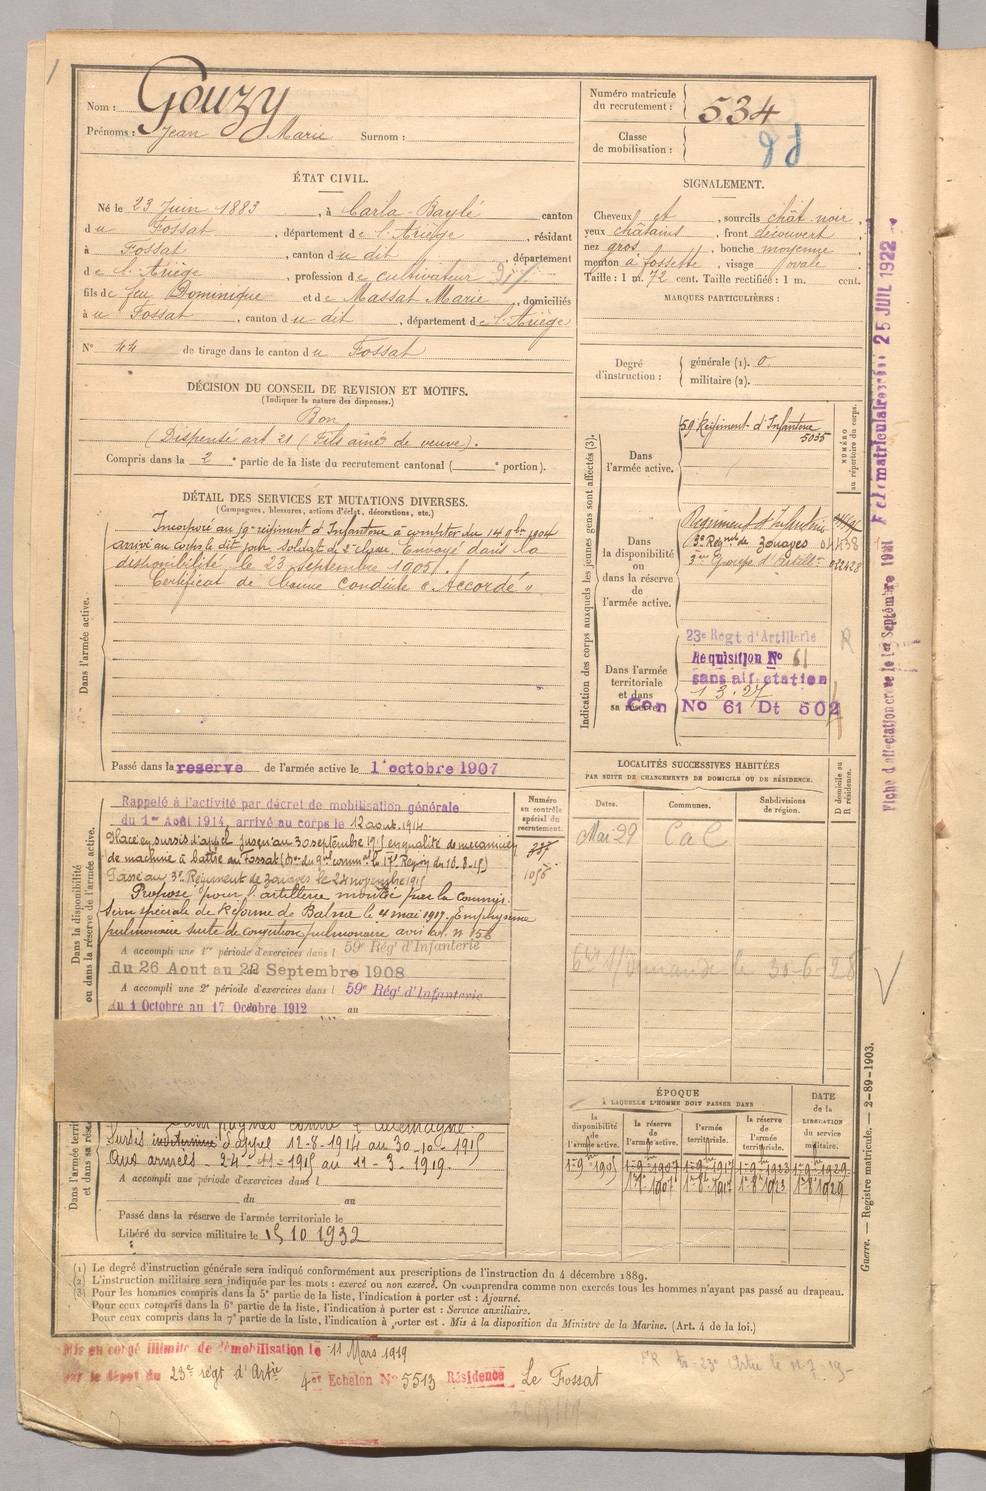 Nom : Gouzy
Prénoms : Jean Marie Surnom :
Numéro matricule
du recrutement : 534
Classe
de mobilisation :
ÉTAT CIVIL.
Né le 23 Juin 1883, à Carla-Bayle canton
du Fossat, département de l'Ariège, résidant
à Fossat, canton du dit, département
de l'Ariège, profession de cultivateur
fils de feu Dominique et de Massat Marie, domiciliés
à u Fossat, canton du dit, département de l'Ariège
N° 44 de tirage dans le canton du Fossat
SIGNALEMENT.
Cheveux et, sourcils chât noir,
yeux châtains, front découvert
nez gros, bouche moyenne
menton à fossette, visage ovale
Taille : 1 m. 72 cent. Taille rectifiée : 1 m. cent.
MARQUES PARTICULIÈRES :
Degré
d'instruction :
générale (1). 0
militaire (2).
DÉCISION DU CONSEIL DE REVISION ET MOTIFS.
(Indiquer la nature des dispenses.)
Bon
(Dispensé art 21 (Fils aîné de veuve).
Compris dans la 2e partie de la liste du recrutement cantonal ( e portion).
DÉTAIL DES SERVICES ET MUTATIONS DIVERSES.
(Campagnes, blessures, actions d'éclat, décorations, etc.)
Dans l'armée active.
Incorporé au régiment d'Infanterie à compter du 14 9bre 1904
arrivé au corps le dit jour soldat de 2e classe. Envoyé dans la
disponibilité le 23 septembre 1905.
Certificat de bonne conduite "Accordé".
Passé dans la reserve de l'armée active le 1er octobre 1907
Indication des corps auxquels les jeunes gens sont affectés (3).
NUMÉRO
au répertoire du corps.
Dans
l'armée active.
59 Régiment d'Infanterie
5035
Dans
la disponibilité
ou
dans la réserve
de
l'armée active.
Régiment d'Infanterie
3e Régnt de Zouaves
3e Groupe d'Artill
Dans l'armée
territoriale
et dans
sa réserve.
23e Régt d'Artillerie
Requisition N° 61
sans affectation
1.3.27
Con No 61 Dt 502
R
Fiche d'affectation créée le 1er Septembre 1921
Fche matriculaire créée 25 JUIL 1922
LOCALITÉS SUCCESSIVES HABITÉES
PAR SUITE DE CHANGEMENTS DE DOMICILE OU DE RÉSIDENCE.
D domicile ou
R résidence.
Dates. Communes. Subdivisions
de région.
Mai 29 CaC
le 30-6-28
Dans la disponibilité
ou dans la réserve de l'armée active.
Numéro
au contrôle
spécial du
recrutement.
Rappelé à l'activité par décret de mobilisation générale
du 1er Août 1914, arrivé au corps le 12 aout 1914
Placé en sursis d'appel jusqu'au 30 septembre 1915 en qualité de mécanicien
de machine à battre au Fossat
Passé au 3e Régiment de Zouaves le 24 novembre 1915
Proposé pour l'artillerie montée par la Commis-
sion spéciale de Réforme de Batna le 4 mai 1917. Emphysème
pulmonaire suite de congestion pulmonaire
A accompli une 1re période d'exercices dans l 59e Rég' d'Infanterie
du 26 Aout au 22 Septembre 1908
A accompli une 2e période d'exercices dans l 59e Rég' d'Infanterie
du 1 Octobre au 17 Octobre 1912 au
Campagnes contre l'Allemagne.
Sursis indéterminé d'appel 12-8-1914 au 30-10-1915
Aux armées - 24-11-1915 au 11-3-1919.
A accompli une période d'exercices dans l
du au
Passé dans la réserve de l'armée territoriale le
Libéré du service militaire le 15 10 1932
ÉPOQUE
À LAQUELLE L'HOMME DOIT PASSER DANS
DATE
de la
LIBÉRATION
du service
militaire.
la disponibilité
de
l'armée active.
la réserve
de
l'armée active.
l'armée
territoriale.
la réserve
de
l'armée
territoriale.
1-9-1905 1-9-1907 1-9-1917 1-9-1923 1-9-1929
Guerre. — Registre matricule. — 2-89-1903.
(1) Le degré d'instruction générale sera indiqué conformément aux prescriptions de l'instruction du 4 décembre 1889.
(2) L'instruction militaire sera indiquée par les mots : exercé ou non exercé. On comprendra comme non exercés tous les hommes n'ayant pas passé au drapeau.
(3) Pour les hommes compris dans la 5e partie de la liste, l'indication à porter est : Ajourné.
Pour ceux compris dans la 6e partie de la liste, l'indication à porter est : Service auxiliaire.
Pour ceux compris dans la 7e partie de la liste, l'indication à porter est : Mis à la disposition du Ministre de la Marine. (Art. 4 de la loi.)
Mis en congé illimité de démobilisation le 11 Mars 1919
par le dépôt du 23e régt d'Artie 4er Echelon N° 5513 Résidence Le Fossat